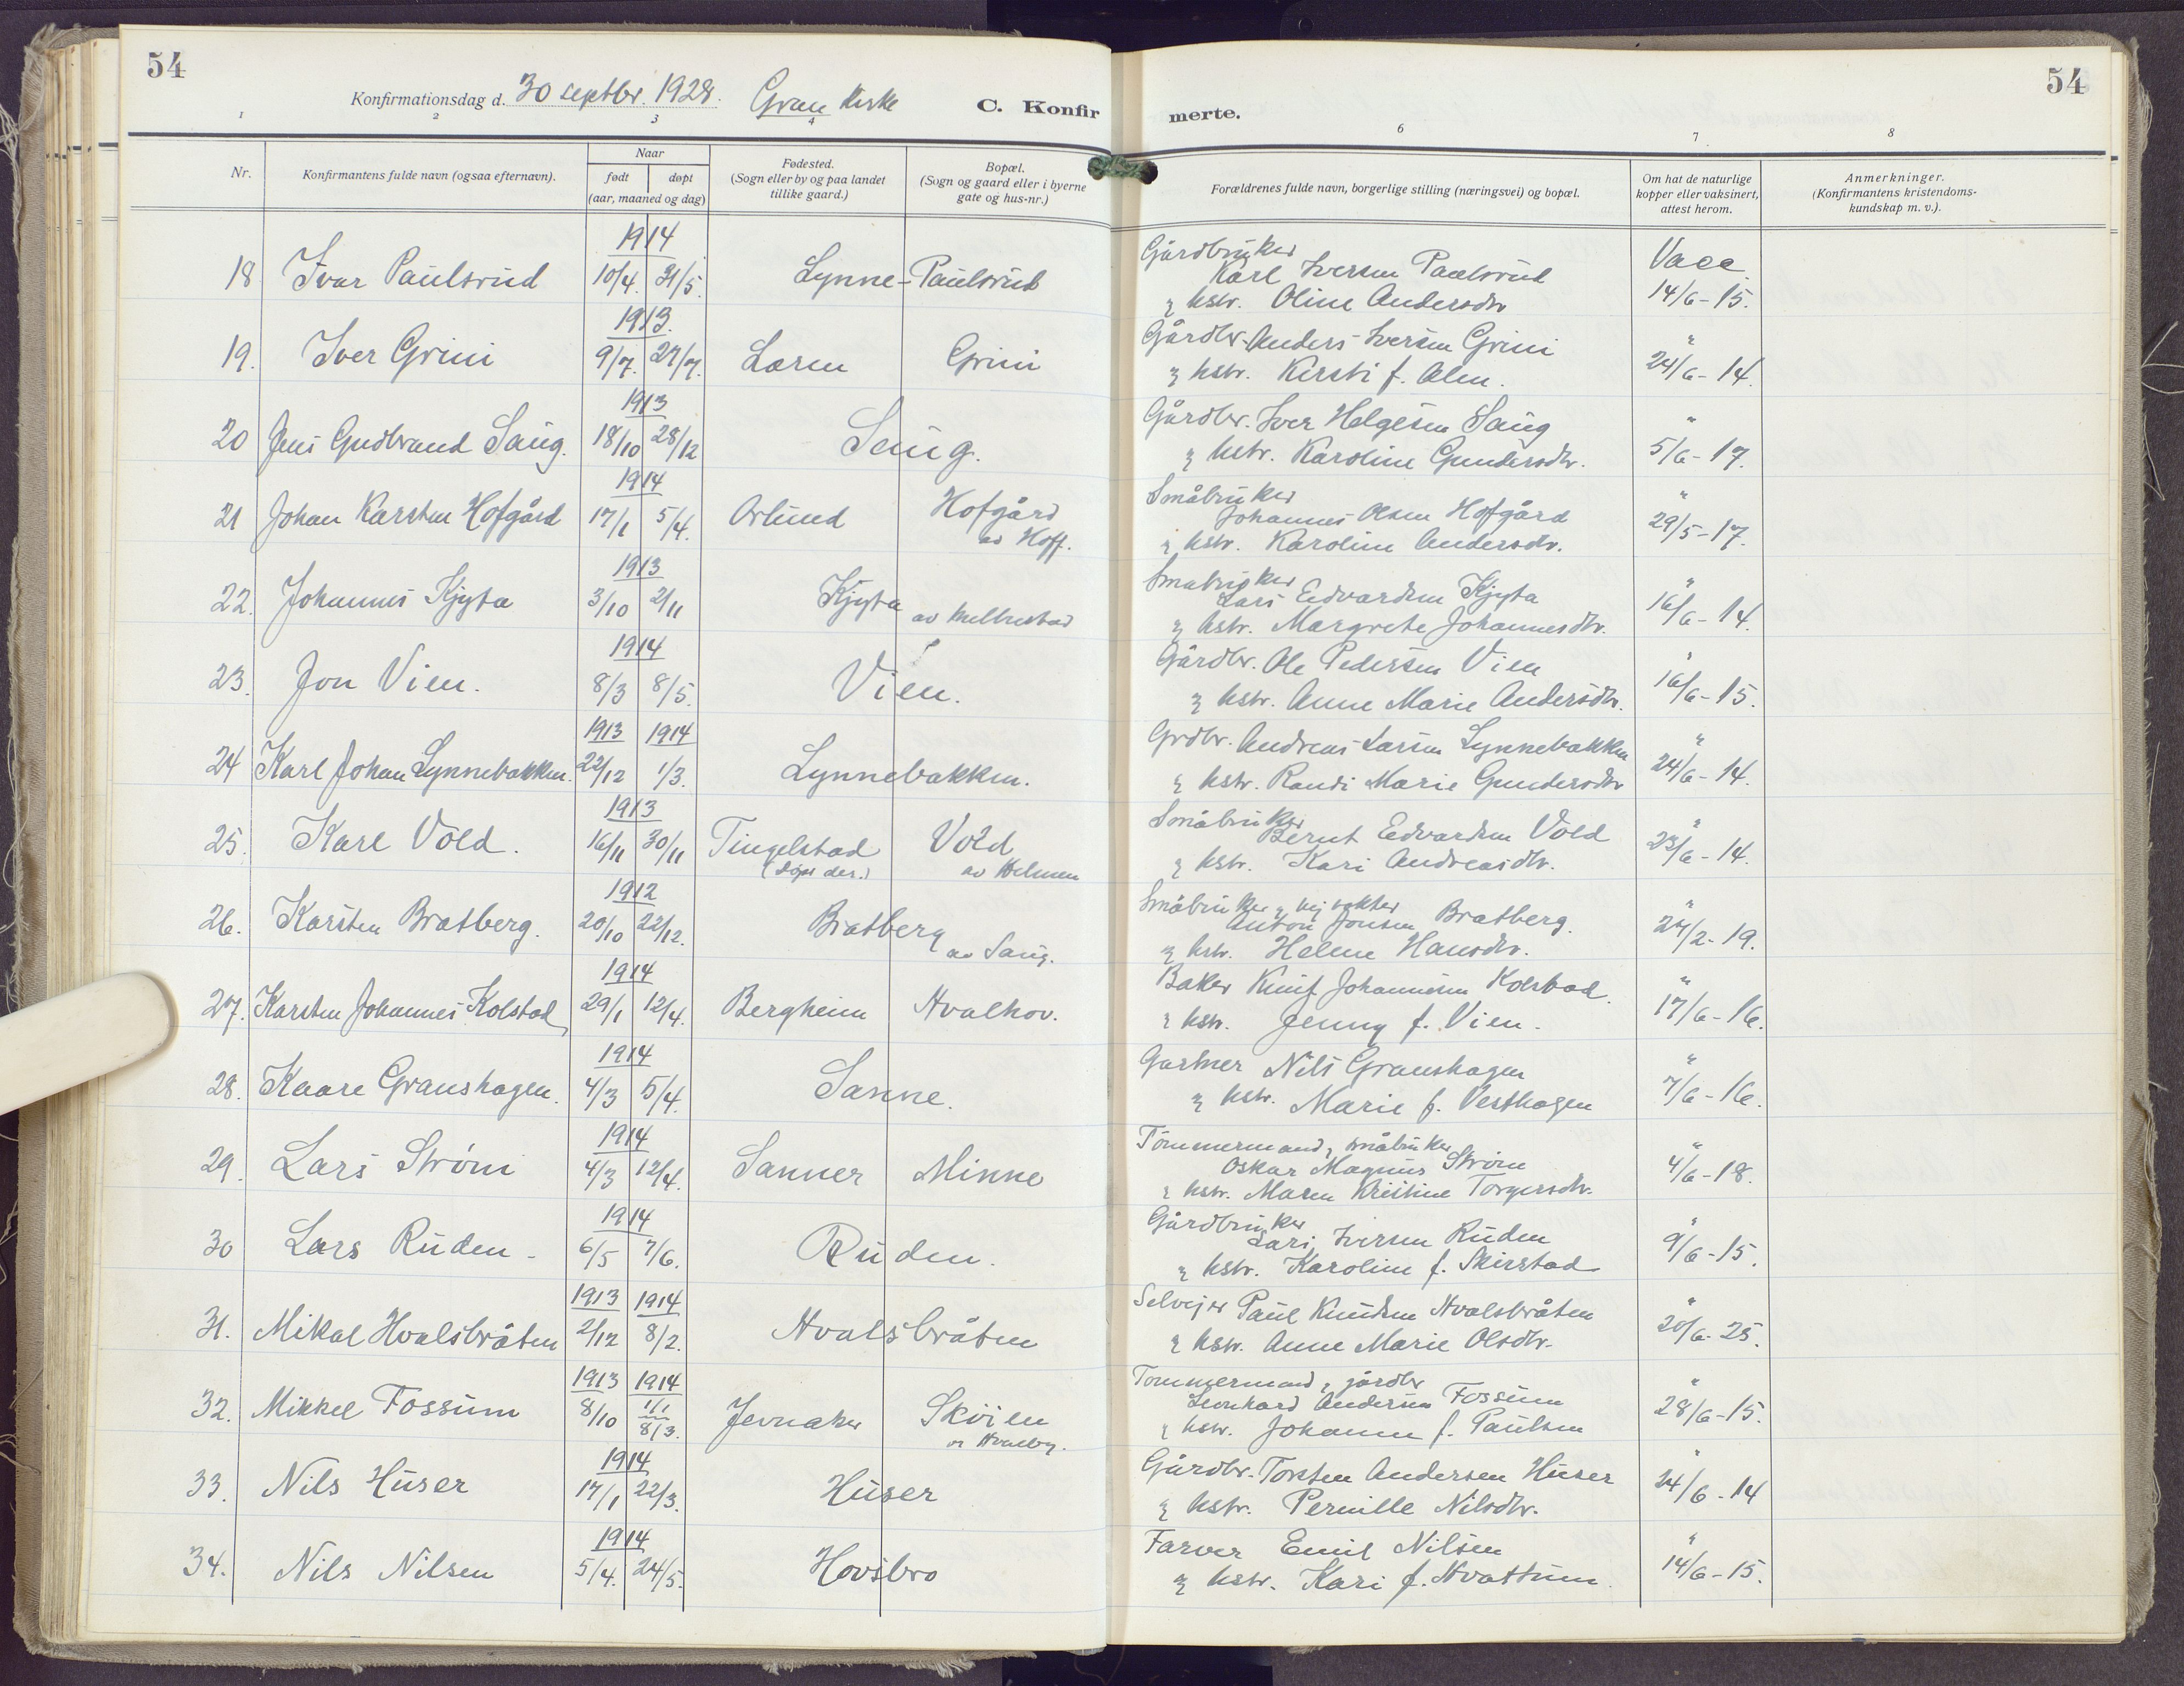 54
Konfirmationsdag d. 30 septbr. 1928. Gran kirke C. Konfir
1 2 3 4
Nr. Konfirmantens fulde navn (ogsaa efternavn). Naar født døpt (aar, maaned og dag) Fødested. (Sogn eller by og paa landet tillike gaard.) Bopæl. (Sogn og gaard eller i byerne gate og hus-nr.)
1914
18 Ivar Paulsrud 10/4. 31/5. Lynne - Paulsrud
1913.
19. Iver Grini 9/7. 27/7. Loren Grini
1913
20 Jens Gudbrand Saug. 18/10 28/12 Saug.
1914
21 Johan Karsten Hofgård 17/1 5/4. Orlund Hofgård
av Hoff.
1913
22. Johannes Kjyta 3/10 2/11 Kjyta av Melbustad
1914
23. Jon Vien. 8/3 8/5. Vien.
1913 1914
24 Karl Johan Lynnebakken. 22/12 1/3. Lynnebakken.
1913
25. Kare Vold. 16/11 30/11 Tingelstad Vold
(døpt der.) av Helmen
1912
26. Karsten Bratberg. 20/10 22/12. Bratberg
av Saug.
1914
27. Karsten Johannes Kolstad 29/1 12/4. Bergheim Hvalhov.
1914
28. Kaare Granshagen. 4/3 5/4. Sanne.
1914
29. Lars Strøm 4/3 12/4. Sanner Minne
1914
30 Lars Ruden - 6/5 7/6. Ruden.
1913 1914
31. Mikal Hvalsbråten 2/12 8/2. Hvalsbråten
1913 1914
32. Mikkel Fossum 8/10 1/1 8/3. Jevnaker Skøien
av Hvaleby.
1914
33. Nils Huser 17/1 22/3. Huser
1914
34. Nils Nilsen 5/4. 24/5. Hovsbro
54
merte.
6 7 8
Forældrenes fulde navn, borgerlige stilling (næringsvei) og bopæl. Om hat de naturlige kopper eller vaksinert, attest herom. Anmerkninger. (Konfirmantens kristendoms- kundskap m. v.).
Gårdbruker Vacc
Karl Iversen Paulsrud
& hstr. Oline Andersdtr 14/6-15.
Gårdbr. Anders Iversen Grini "
& hstr. Kersti f. Alm. 24/6-14.
Gårdbr. Iver Helgesen Saug "
& hstr. Karoline Gundersdtr. 5/6-17.
Småbruker "
Johannes Olsen Hofgård 29/5-17.
& hstr. Karoline Andersdtr.
Småbruker "
Lars Edvardsen Kjyta 16/6-14.
& hstr. Margrete Johannesdtr.
Gårdbr. Ole Pedersen Vien "
& hstr. Anne Marie Andersdtr. 16/6-15.
Grdbr. Andreas Larsen Lynnebakken "
& hstr. Randi Marie Gundersdtr 24/6-14.
Småbruker "
Bernt Edvardsen Vold 23/6-14.
& hstr. Kari Andreasdtr.
Småbruker & vejvokter "
Anton Jonsen Bratberg. 24/2-19.
& hstr. Helene Hansdtr.
Baker Knut Johannesen Kolstad. "
& hstr. Jenny f. Vien. 17/6-16.
Gartner Nils Granshagen "
& hstr. Marie f. Vesthagen 7/6-16.
Tømmermand, småbruker "
Oskar Magnus Strøm 4/6-18.
& hstr. Maren Kristine Torgersdtr.
Gårdbruker "
Lars Iversen Ruden 9/6-15.
& hstr. Karoline f. Skirstad
Selvejer Paul Knudsen Hvalsbråten "
& hstr. Anne Marie Olsdtr. 20/6-25.
Tømmermand, gårdbr "
Leonhard Andersen Fossum 28/6-15.
& hstr. Johanne f. Paulsen
Gårdbr. Torsten Andersen Huser "
& hstr. Pernille Nilsdtr. 24/6-14
Farver Emil Nilsen "
& hstr. Kari f. Hvattum. 14/6-15.